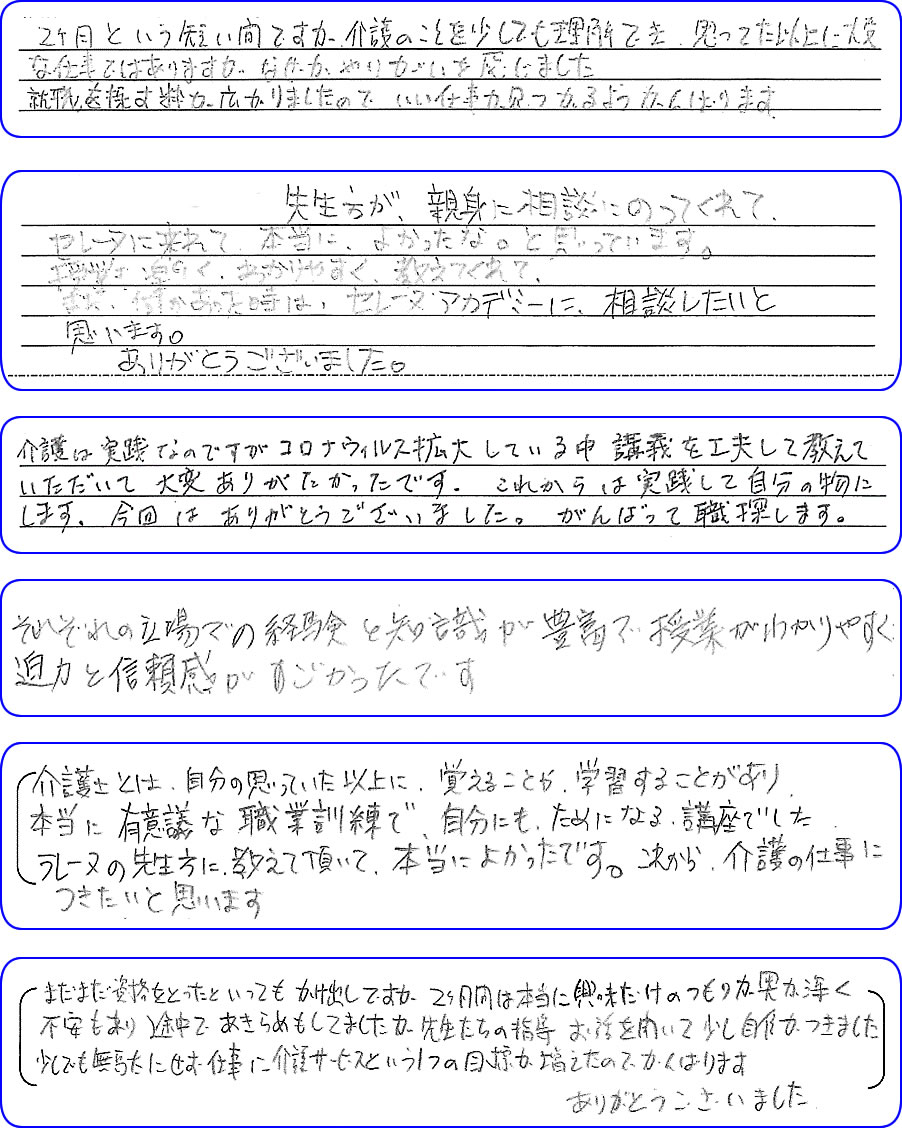 2ヶ月という短い間ですが、介護のことを少しでも理解でき、思ってた以上に大変
な仕事ではありますが、なぜか、やりがいを感じました
就職選択す 幅が広がりましたので いい仕事が見つかるようがんばります
先生方が、親身に相談にのってくれて、
セレーヌに来れて、本当に、よかったな。と思っています。
授業は楽しく、わかりやすく、教えてくれて、
また、何かあった時は、セレーヌアカデミーに、相談したいと
思います。
ありがとうございました。
介護は実践なのですがコロナウィルス拡大している中 講義を工夫して教えて
いただいて 大変ありがたかったです. これからは実践して自分の物に
します. 今回は ありがとうございました。 がんばって職探します。
それぞれの立場での経験と知識が豊富で、授業がわかりやすく
迫力と信頼感がすごかったです
介護士とは、自分の思っていた以上に、覚えることや、学習することがあり、
本当に有意議な職業訓練で、自分にも、ためになる、講座でした
ラレーヌの先生方に、教えて頂いて、本当によかったです。これから、介護の仕事に
つきたいと思います
まだまだ資格をとったといっても かけ出しですが 2ヶ月間は本当に興味だけのつもりが奥が深く
不安もあり 途中で あきらめもしてましたが 先生たちの指導 お話を聞いて少し自信がつきました
少しでも無駄にせず 仕事に介護サービスという1つの目標が増えたので がんばります
ありがとうございました